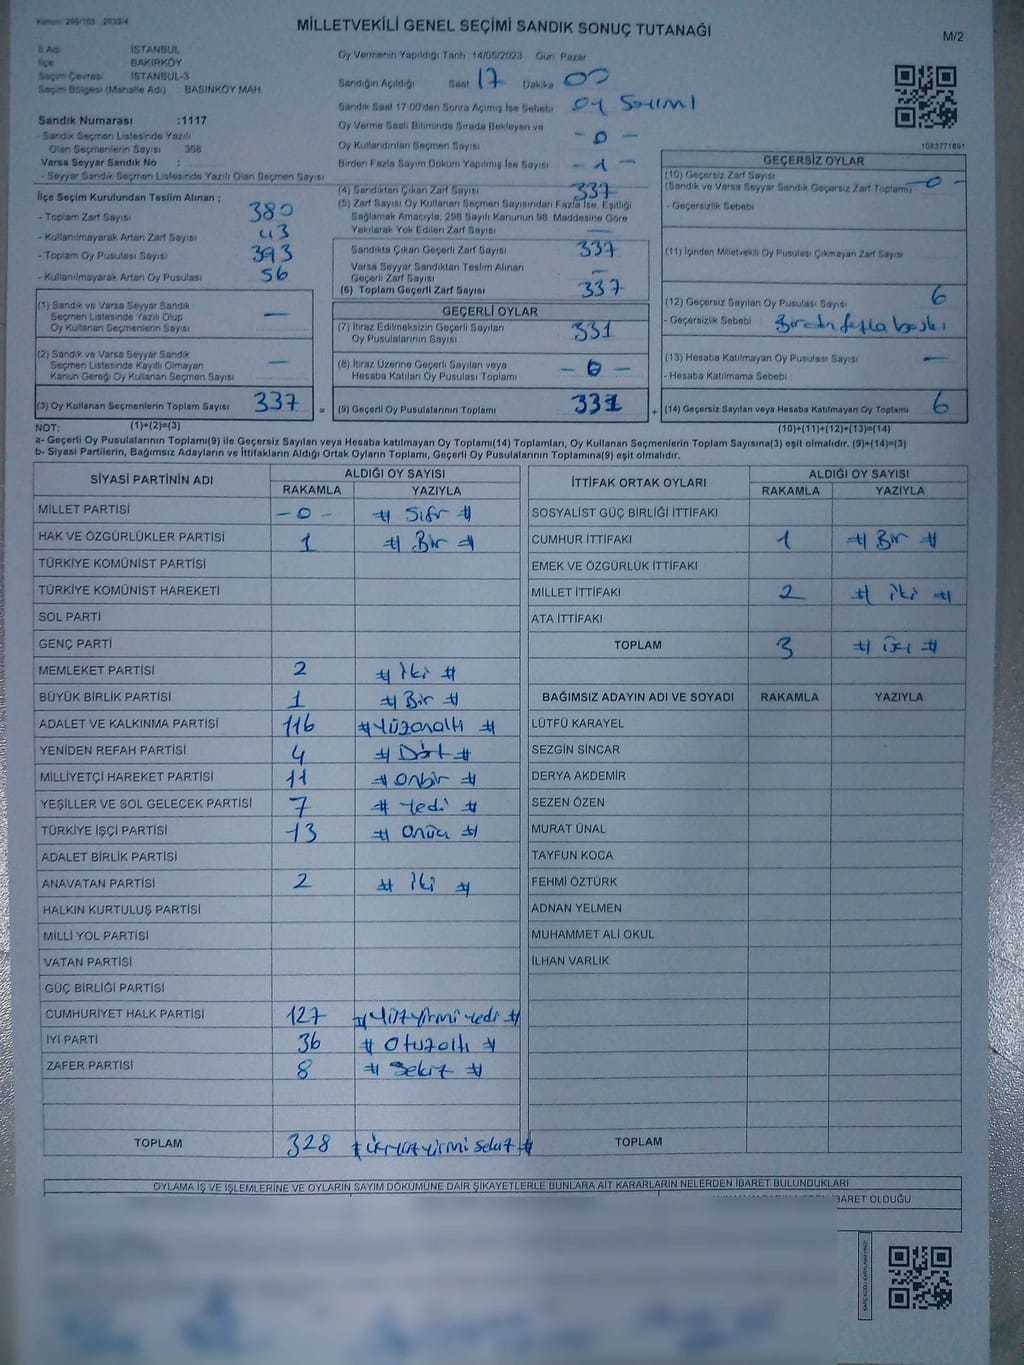 Kanun: 298/103 2839/4
MİLLETVEKİLİ GENEL SEÇİMİ SANDIK SONUÇ TUTANAĞI
M/2
İl Adı İSTANBUL
İlçe BAKIRKÖY
Seçim Çevresi İSTANBUL-3
Seçim Bölgesi (Mahalle Adı) BASINKÖY MAH
Sandık Numarası :1117
- Sandık Seçmen Listesinde Yazılı
Olan Seçmenlerin Sayısı 368
Varsa Seyyar Sandık No :
- Seyyar Sandık Seçmen Listesinde Yazılı Olan Seçmen Sayısı
Oy Vermenin Yapıldığı Tarih 14/05/2023 Gün Pazar
Sandığın Açıldığı Saat 17 Dakika 00
Sandık Saat 17 00'den Sonra Açılmış İse Sebebi Oy Sayımı
Oy Verme Saati Bitiminde Sırada Bekleyen ve
Oy Kullandırılan Seçmen Sayısı - 0 -
Birden Fazla Sayım Döküm Yapılmış İse Sayısı - 1 -
1083771891
İlçe Seçim Kurulundan Teslim Alınan ;
- Toplam Zarf Sayısı 380
- Kullanılmayarak Artan Zarf Sayısı 43
- Toplam Oy Pusulası Sayısı 393
- Kullanılmayarak Artan Oy Pusulası 56
(1) Sandık ve Varsa Seyyar Sandık
Seçmen Listesinde Yazılı Olup
Oy Kullanan Seçmenlerin Sayısı —
(2) Sandık ve Varsa Seyyar Sandık
Seçmen Listesinde Kayıtlı Olmayan
Kanun Gereği Oy Kullanan Seçmen Sayısı —
(3) Oy Kullanan Seçmenlerin Toplam Sayısı 337
(1)+(2)=(3)
(4) Sandıktan Çıkan Zarf Sayısı 337
(5) Zarf Sayısı Oy Kullanan Seçmen Sayısından Fazla İse, Eşitliği
Sağlamak Amacıyla, 298 Sayılı Kanunun 98. Maddesine Göre
Yakılarak Yok Edilen Zarf Sayısı —
Sandıkta Çıkan Geçerli Zarf Sayısı 337
Varsa Seyyar Sandıktan Teslim Alınan
Geçerli Zarf Sayısı —
(6) Toplam Geçerli Zarf Sayısı 337
GEÇERLİ OYLAR
(7) İtiraz Edilmeksizin Geçerli Sayılan
Oy Pusulalarının Sayısı 331
(8) İtiraz Üzerine Geçerli Sayılan veya
Hesaba Katılan Oy Pusulası Toplamı - 0 -
= (9) Geçerli Oy Pusulalarının Toplamı 331
GEÇERSİZ OYLAR
(10) Geçersiz Zarf Sayısı
(Sandık ve Varsa Seyyar Sandık Geçersiz Zarf Toplamı) - 0 -
- Geçersizlik Sebebi
(11) İçinden Milletvekili Oy Pusulası Çıkmayan Zarf Sayısı
(12) Geçersiz Sayılan Oy Pusulası Sayısı 6
- Geçersizlik Sebebi Birden fazla baskı
(13) Hesaba Katılmayan Oy Pusulası Sayısı —
- Hesaba Katılmama Sebebi
+ (14) Geçersiz Sayılan veya Hesaba Katılmayan Oy Toplamı 6
(10)+(11)+(12)+(13)=(14)
NOT:
a- Geçerli Oy Pusulalarının Toplamı(9) ile Geçersiz Sayılan veya Hesaba katılmayan Oy Toplamı(14) Toplamları, Oy Kullanan Seçmenlerin Toplam Sayısına(3) eşit olmalıdır. (9)+(14)=(3)
b- Siyasi Partilerin, Bağımsız Adayların ve İttifakların Aldığı Ortak Oyların Toplamı, Geçerli Oy Pusulalarının Toplamına(9) eşit olmalıdır.
SİYASİ PARTİNİN ADI ALDIĞI OY SAYISI
RAKAMLA YAZIYLA
MİLLET PARTİSİ - 0 - # Sıfır #
HAK VE ÖZGÜRLÜKLER PARTİSİ 1 # Bir #
TÜRKİYE KOMÜNİST PARTİSİ
TÜRKİYE KOMÜNİST HAREKETİ
SOL PARTİ
GENÇ PARTİ
MEMLEKET PARTİSİ 2 # İki #
BÜYÜK BİRLİK PARTİSİ 1 # Bir #
ADALET VE KALKINMA PARTİSİ 116 # Yüzonaltı #
YENİDEN REFAH PARTİSİ 4 # Dört #
MİLLİYETÇİ HAREKET PARTİSİ 11 # onbir #
YEŞİLLER VE SOL GELECEK PARTİSİ 7 # Yedi #
TÜRKİYE İŞÇİ PARTİSİ 13 # onüç #
ADALET BİRLİK PARTİSİ
ANAVATAN PARTİSİ 2 # İki #
HALKIN KURTULUŞ PARTİSİ
MİLLİ YOL PARTİSİ
VATAN PARTİSİ
GÜÇ BİRLİĞİ PARTİSİ
CUMHURİYET HALK PARTİSİ 127 # Yüzyirmi yedi #
İYİ PARTİ 36 # Otuzaltı #
ZAFER PARTİSİ 8 # Sekiz #
TOPLAM 328
İTTİFAK ORTAK OYLARI ALDIĞI OY SAYISI
RAKAMLA YAZIYLA
SOSYALİST GÜÇ BİRLİĞİ İTTİFAKI
CUMHUR İTTİFAKI 1 # Bir #
EMEK VE ÖZGÜRLÜK İTTİFAKI
MİLLET İTTİFAKI 2 # iki #
ATA İTTİFAKI
TOPLAM 3
BAĞIMSIZ ADAYIN ADI VE SOYADI RAKAMLA YAZIYLA
LÜTFÜ KARAYEL
SEZGİN SİNCAR
DERYA AKDEMİR
SEZEN ÖZEN
MURAT ÜNAL
TAYFUN KOCA
FEHMİ ÖZTÜRK
ADNAN YELMEN
MUHAMMET ALİ OKUL
İLHAN VARLIK
TOPLAM
OYLAMA İŞ VE İŞLEMLERİNE VE OYLARIN SAYIM DÖKÜMÜNE DAİR ŞİKAYETLERLE BUNLARA AİT KARARLARIN NELERDEN İBARET BULUNDUKLARI
İBARET OLDUĞU